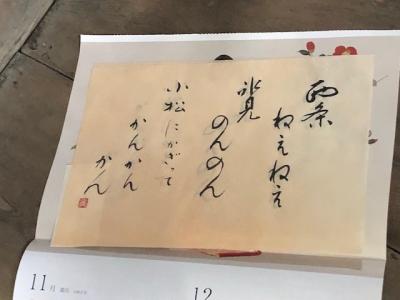 西条
ねえねえ
氷見
のんのん
小松にかぎって
かんかん
かん
11月
12